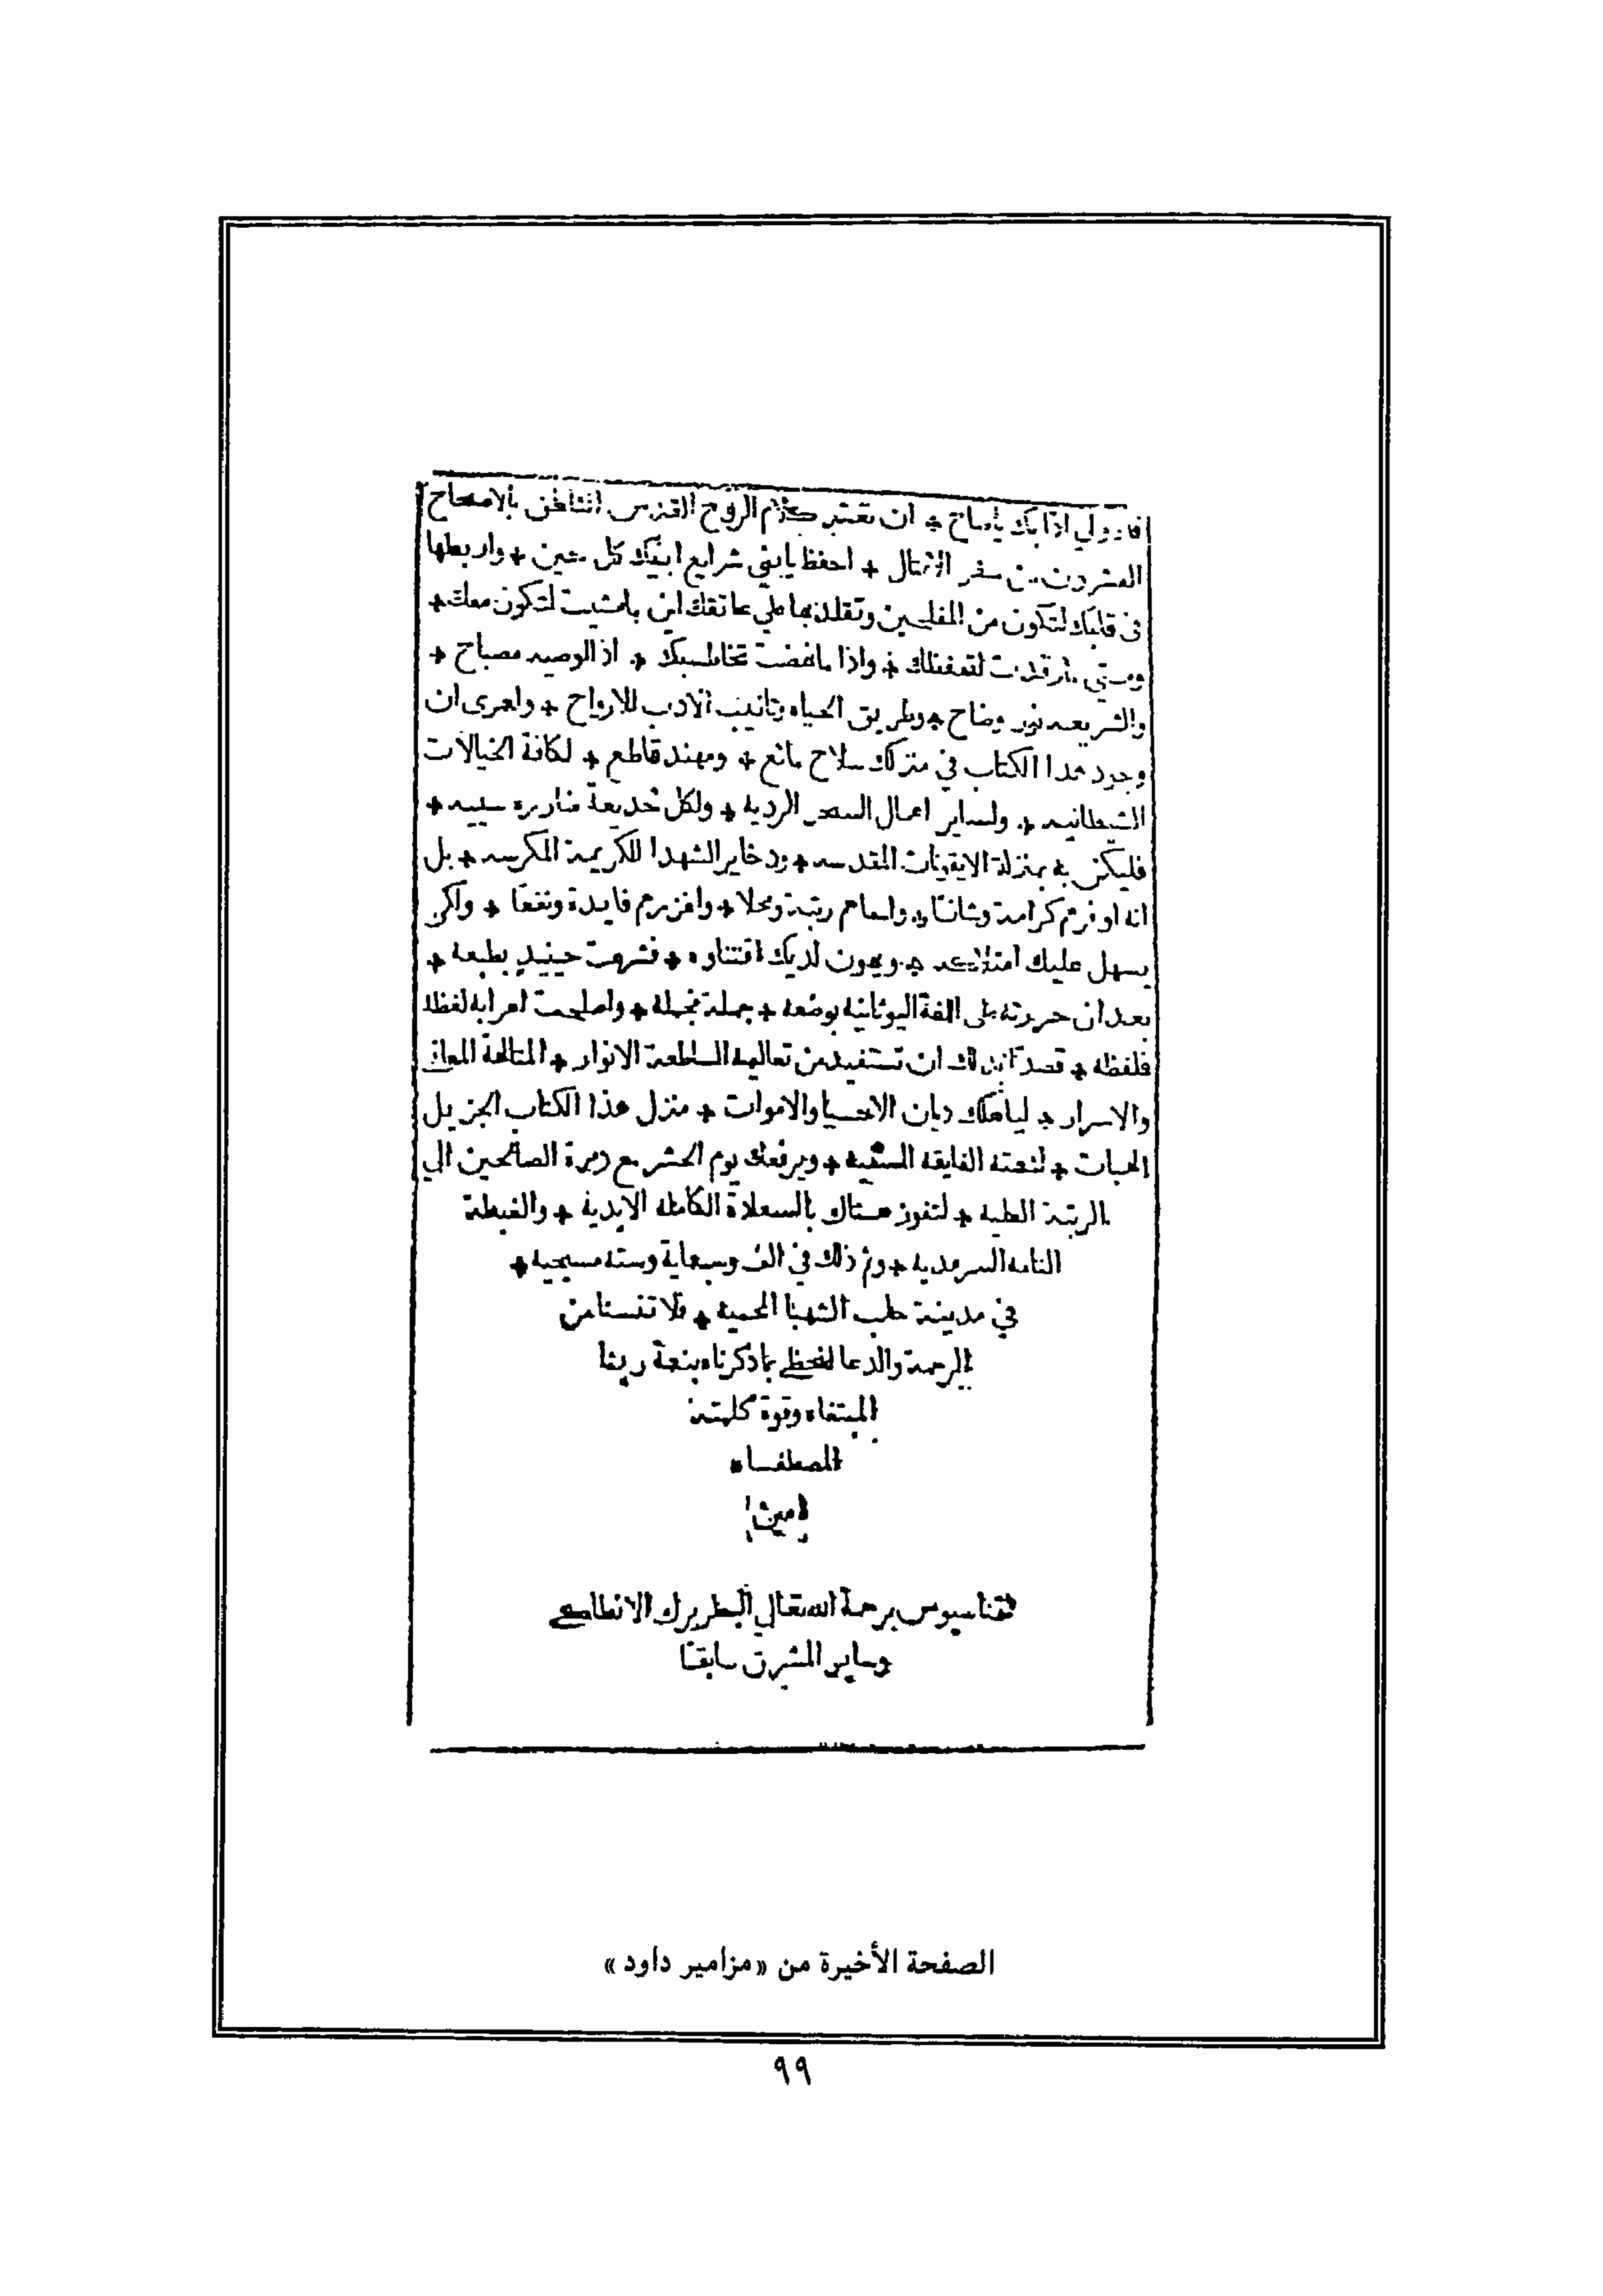 اذا بك ياصاح + ان تعتبر كلام الروح القدس الناطق بالاصحاح
العشرون من سفر الامثال + احفظ يابني شرايع ابيك كل حين + واربطها
في قلبك لتكون من المفلحين وتقلد بها علي عاتقك اين ما مشيت لتكون معك +
ومتي رقدت لتحفظك + واذا ما نهضت تخاطبك + اذ الوصيه مصباح +
والشريعه نور وضاح + وطريق الحياه وتانيب الادب للارواح + ولعمرى ان
وجود هذا الكتاب في منزلك سلاح مانع + ومهند قاطع + لكافة الخيالات
الشيطانيه + ولساير اعمال السحر الرديه + ولكل خديعة
فليكن بمنزلة الايقونات المقدسه + وذخاير الشهدا الكريمة المكرسه + بل
انه اوفرهم كرامة وشانا + واسماهم رتبة ومحلا + واغزرهم فايدة ونفعا + ولكي
يسهل عليك + ويهون لديك اقتناوه + فشرعت حينيد بطبعه +
بعد ان حررته على اللغة اليونانيه بوضعه + جملة مجملة + واصلحت اعرابه لفظه
فلفظه + قصدا بذلك ان تستفيد من تعاليمه الساطعة الانوار +
والاسرار + لياهلك ديان الاحيا والاموات + منزل هذا الكتاب الجزيل
الهبات + لنعمته الفايقه السنيه + ويرفعك يوم الحشر مع زمرة الصالحين الي
الرتبة العليه + لتفوز هناك بالسعادة الكامله الابدية + والغبطة
التامه السرمديه + وتم ذلك في الف وسبعماية وسته مسيحيه +
في مدينة حلب الشهبا المحميه + فلا تنسنا من
الرحمة والدعا لنحظى بما ذكرناه بنعمة ربنا
المبتغاه وقوة كلمته
المصطفاه
امين
اثناسيوس برحمة الله تعالي البطريرك الانطاكي
وساير المشرق سابقا
الصفحة الأخيرة من «مزامير داود»
٩٩